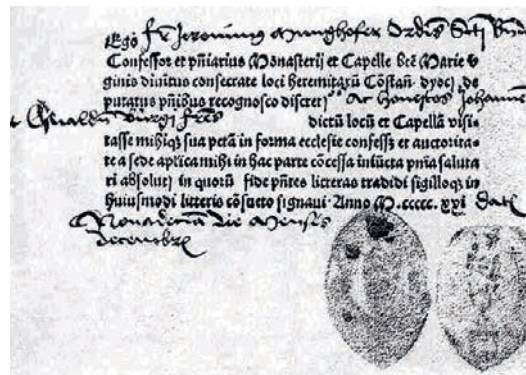 Ego fr̄ Jeronimus Munghofer Ordīs Scti Bn̄d
Confessor et pn̄iarius Monasterij et Capelle btē Marie v
ginis diuinitus consecrate loci heremitarū Cōstan̄. dyoc̄. de
putatus pn̄ibus recognosco discret Ac honestos Johann
dictū locū et Capellā visi-
tasse mihiqꝫ sua pctā in forma ecclesie confessꝫ et auctorita-
te a sede aplica mihi in hac parte cōcessa iniūcta pn̄ia saluta
ri absoluj in quorū fide pn̄tes litteras tradidi sigilloqꝫ in
huiusmodi litteris cōsueto signaui. Anno M.ccccc.xxi dat
die Mensis
decembrꝫ